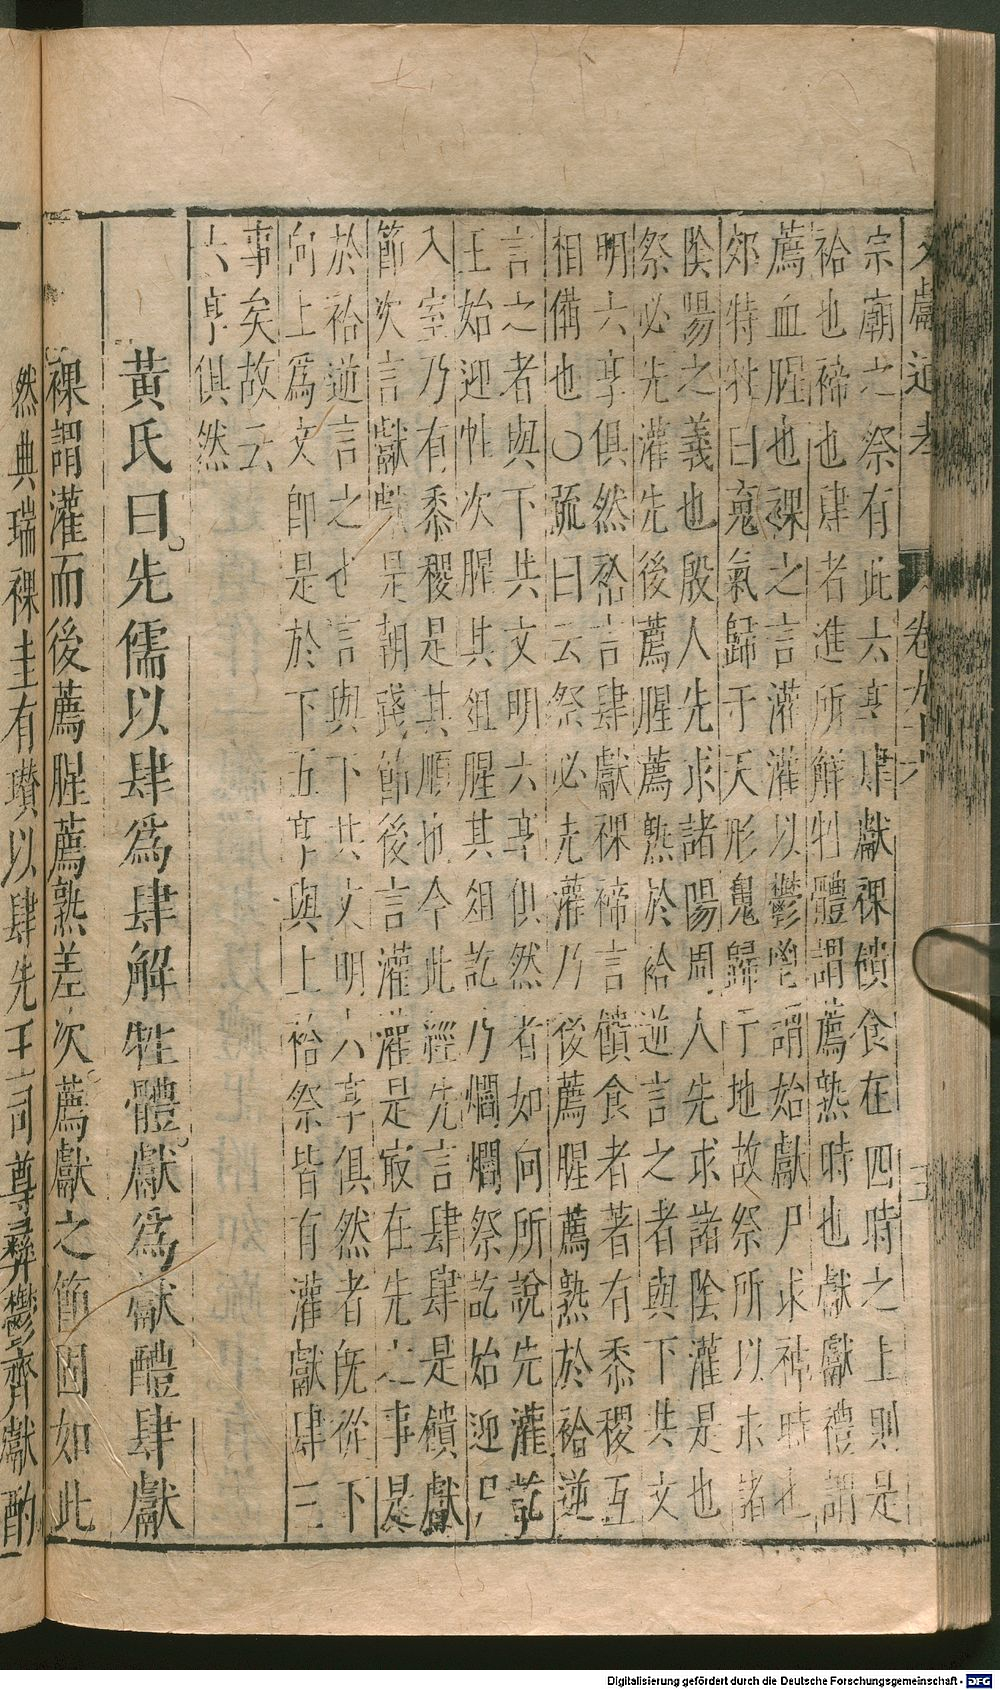 文獻通考 卷九十六 三
宗廟之祭有此六享肆獻祼饋食在四時之上則是
祫也禘也肆者進所解牲體謂薦熟時也獻獻禮謂
薦血腥也祼之言灌灌以鬱鬯謂始獻尸求神時也
郊特牲曰䰟氣歸于天形魄歸于地故祭所以求諸
陰陽之義也殷人先求諸陽周人先求諸陰灌是也
祭必先灌先後薦腥薦熟於祫逆言之者與下共文
明六享俱然祫言肆獻祼禘言饋食者著有黍稷互
相備也〇疏曰云祭必先灌乃後薦腥薦熟於祫逆
言之者與下共文明六享俱然者如向所說先灌訖
王始迎牲次腥其俎腥其俎訖乃爓爓祭訖始迎尸
入室乃有黍稷是其順也今此經先言肆肆是饋獻
節次言獻獻是朝踐節後言灌灌是最在先之事是
於祫逆言之也言與下共文明六享俱然者旣從下
向上爲文卽是於下五享與上祫祭皆有灌獻肆三
事矣故云
六享俱然
黃氏曰先儒以肆爲肆解牲體獻爲獻醴肆獻
祼謂灌而後薦腥薦熟差次薦獻之節固如此
然典瑞祼圭有瓚以肆先王司尊彝鬱齊獻酌
Digitalisierung gefördert durch die Deutsche Forschungsgemeinschaft - DFG